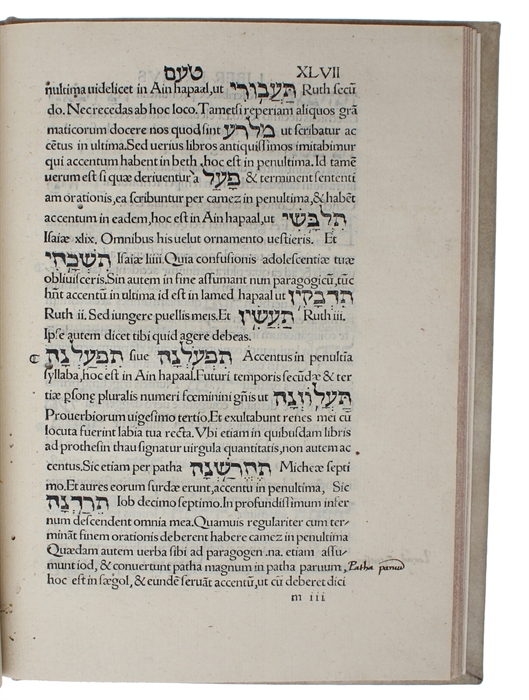 טעם XLVII
nultima uidelicet in Ain hapaal, ut תַּעֲבוּרִי Ruth secū
do. Nec recedas ab hoc loco. Tametsi reperiam aliquos grā
maticorum docere nos quod sint מִלְּרַע ut scribatur ac
cētus in ultima. Sed uerius libros antiquissimos imitabimur
qui accentum habent in beth, hoc est in penultima. Id tamē
uerum est si quæ deriuentur a פָּעַל & terminent sententi
am orationis, ea scribuntur per camez in penultima, & habēt
accentum in eadem, hoc est in Ain hapaal, ut תִּלְבָּשִׁי
Isaiæ xlix. Omnibus his uelut ornamento uestieris. Et
תִּשְׁכָּחִי Isaiæ liiii. Quia confusionis adolescentiæ tuæ
obliuisceris. Sin autem in fine assumant nun paragogicū, tūc
hñt accentū in ultima id est in lamed hapaal ut תִּדְבָּקִין
Ruth ii. Sed iungere puellis meis. Et תַּעֲשִׂין Ruth iii.
Ipse autem dicet tibi quid agere debeas.
תִּפְעַלְנָה siue תִּפְעֹלְנָה Accentus in penultīa
syllaba, hoc est in Ain hapaal. Futuri temporis secūdæ & ter
tiæ psonę pluralis numeri fœminini gñis ut תַּעֲלֹזְנָה
Prouerbiorum uigesimo tertio. Et exultabunt renes mei cū
locuta fuerint labia tua recta. Vbi etiam in quibusdam libris
ad prothesin thau signatur uirgula quantitatis, non autem ac
centus. Sic etiam per patha תֶּחֱרַשְׁנָה Micheæ septi
mo. Et aures eorum surdæ erunt, accentu in penultima, Sic
תֵּרַדְנָה Iob decimo septimo. In profundissimum infer
num descendent omnia mea. Quamuis regulariter cum ter-
mināt finem orationis deberent habere camez in penultima
Quædam autem uerba sibi ad paragogen .na. etiam assu-
munt iod, & conuertunt patha magnum in patha paruum, Patha paruū
hoc est in sægol, & eundē seruāt accentū, ut cū deberet dici
m iii